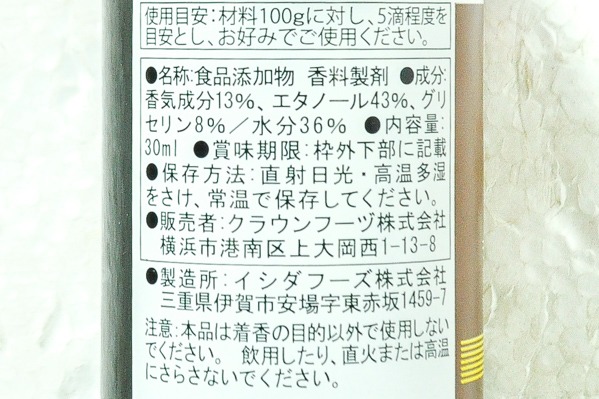 使用目安:材料100gに対し、5滴程度を
目安とし、お好みでご使用ください。
●名称:食品添加物 香料製剤 ●成分:
香気成分13%、エタノール43%、グリ
セリン8%/水分36% ●内容量:
30ml ●賞味期限:枠外下部に記載
●保存方法:直射日光・高温多湿
をさけ、常温で保存してください。
●販売者:クラウンフーヅ株式会社
横浜市港南区上大岡西1-13-8
●製造所:イシダフーズ株式会社
三重県伊賀市安場字東赤坂1459-7
注意:本品は着香の目的以外で使用しない
でください。 飲用したり、直火または高温
にさらさないでください。